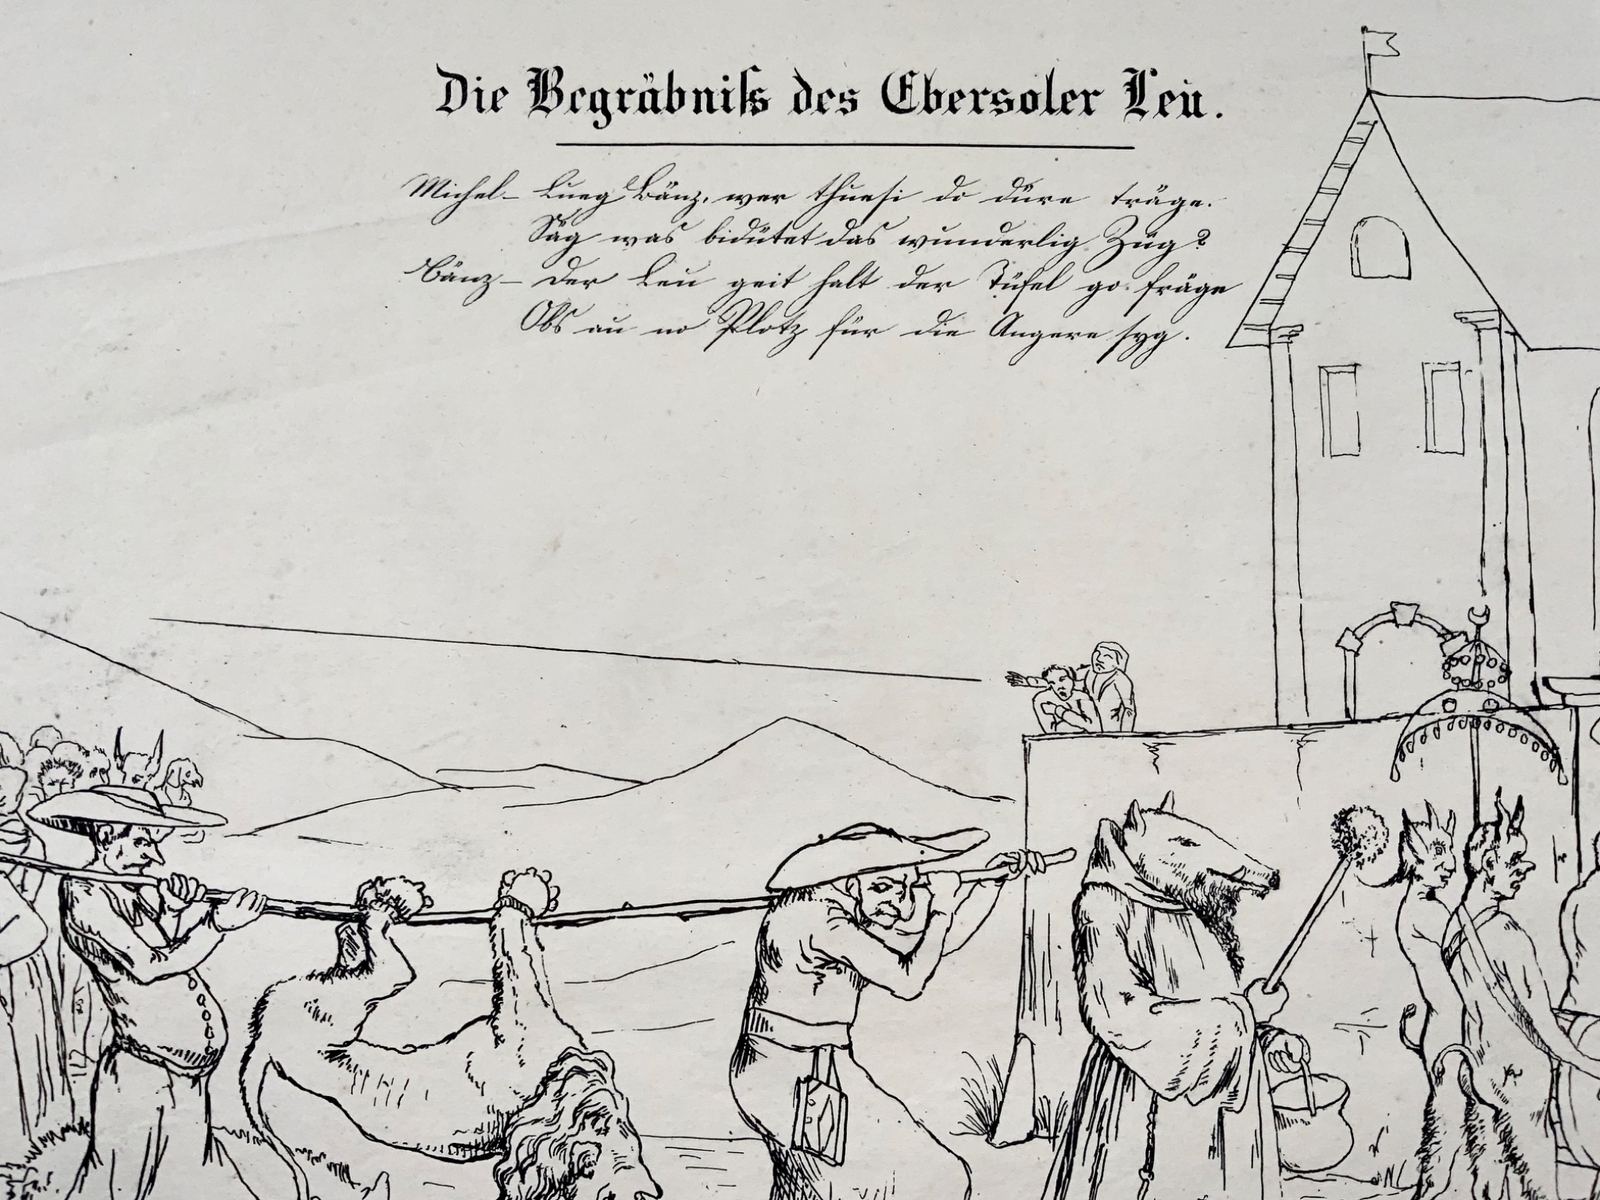 Die Begräbniß des Ebersoler Leu.
Michel – Lueg Bänz, wer thuesi do düre träge.
Säg was bidütet das wunderlig Züg?
Bänz – Der Leu geit halt der Tüfel go fräge
Obs au no Plotz für die Angere syg.